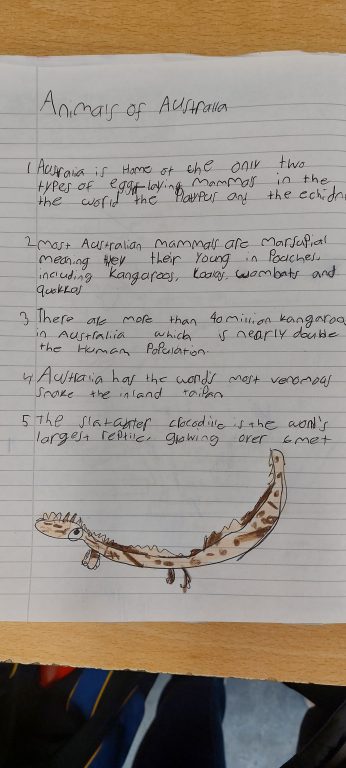 Animals of Australia
1 Australia is Home of the only two
types of egg-laying mammals in the
the world the Platypus and the echidn
2 most Australian mammals are marsupial
meaning they their young in Pouches,
including Kangaroos, Koalas, wombats and
quokkas
3 There are more than 40 million kangaroo
in Australia which is nearly double
the Human Population.
4 Australia has the world's most venomous
snake the inland taipan
5 The crocodile is the world's
largest reptile, growing over 6 met